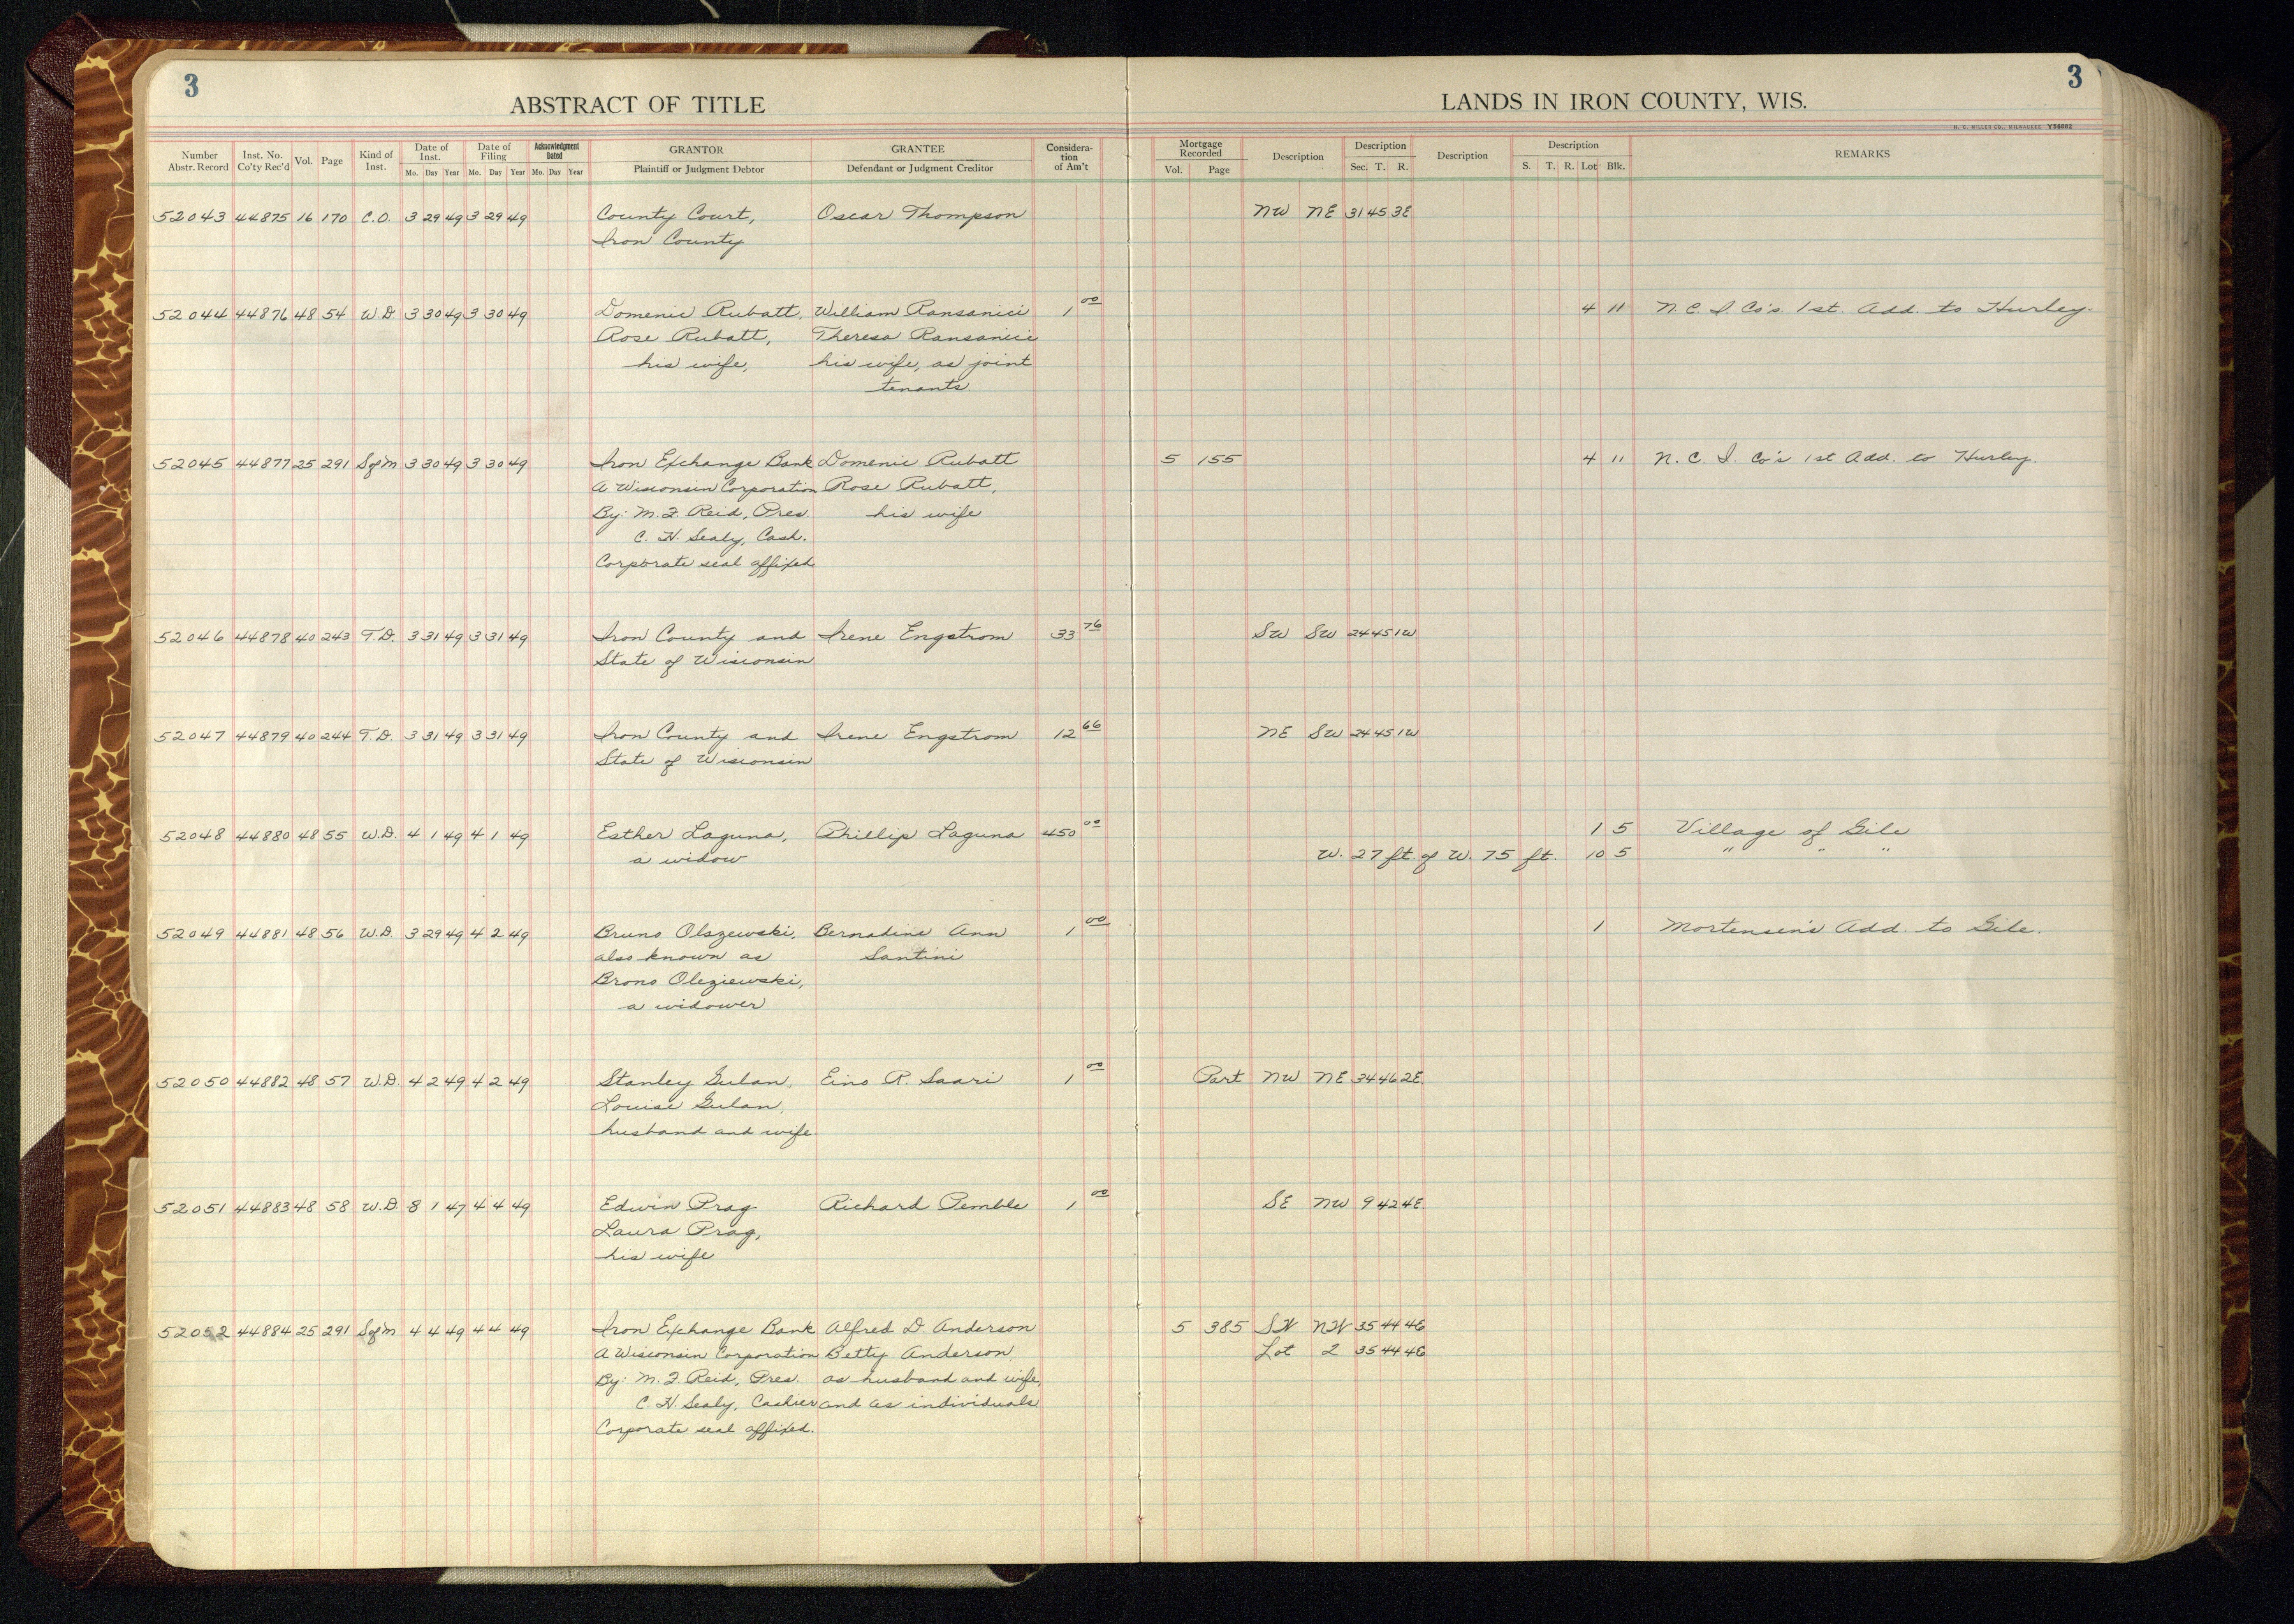 3
3
ABSTRACT OF TITLE
LANDS IN IRON COUNTY, WIS.
H. C. MILLER CO., MILWAUKEE Y58882
Number Abstr. Record Inst. No. Co'ty Rec'd Vol. Page Kind of Inst. Date of Inst. Mo. Day Year Date of Filing Mo. Day Year Acknowledgment Dated Mo. Day Year GRANTOR Plaintiff or Judgment Debtor GRANTEE Defendant or Judgment Creditor Considera-tion of Am't Mortgage Recorded Vol. Page Description Description Sec. T. R. Description Description S. T. R. Lot Blk. REMARKS
52043 44875 16 170 C.O. 3 29 49 3 29 49 County Court, Oscar Thompson NW NE 31 45 3E
Iron County
52044 44876 48 54 W.D. 3 30 49 3 30 49 Domenic Rubatt, William Ransanici 1 00 4 11 N. C. I. Co's. 1st. Add. to Hurley.
Rose Rubatt, Theresa Ransanici
his wife, his wife, as joint
tenants.
52045 44877 25 291 S of M 3 30 49 3 30 49 Iron Exchange Bank Domenic Rubatt 5 155 4 11 N. C. I. Co's 1st Add. to Hurley.
A Wisconsin Corporation Rose Rubatt,
By: M. J. Reid, Pres. his wife
C. H. Sealy, Cash.
Corporate seal affixed
52046 44878 40 243 T.D. 3 31 49 3 31 49 Iron County and Irene Engstrom 33 76 SW SW 24 45 1W
State of Wisconsin
52047 44879 40 244 T.D. 3 31 49 3 31 49 Iron County and Irene Engstrom 12 66 NE SW 24 45 1W
State of Wisconsin
52048 44880 48 55 W.D. 4 1 49 4 1 49 Esther Laguna, Phillip Laguna 450 00 1 5 Village of Gile
a widow W. 27 ft. of W. 75 ft. 10 5 " " "
52049 44881 48 56 W.D. 3 29 49 4 2 49 Bruno Olszewski, Bernadine Ann 1 00 1 Mortensen's Add. to Gile.
also known as Santini
Brono Oleziewski,
a widower
52050 44882 48 57 W.D. 4 2 49 4 2 49 Stanley Gulan, Eino R. Saari 1 00 Part NW NE 34 46 2E.
Louise Gulan,
husband and wife.
52051 44883 48 58 W.D. 8 1 47 4 4 49 Edwin Prag Richard Pemble 1 00 SE NW 9 42 4E.
Laura Prag,
his wife
52052 44884 25 291 S of M 4 4 49 4 4 49 Iron Exchange Bank Alfred D. Anderson 5 385 SW NW 35 44 4E
A Wisconsin Corporation Betty Anderson, Lot 2 35 44 4E
By: M. J. Reid, Pres. as husband and wife,
C. H. Sealy, Cashier and as individuals
Corporate seal affixed.